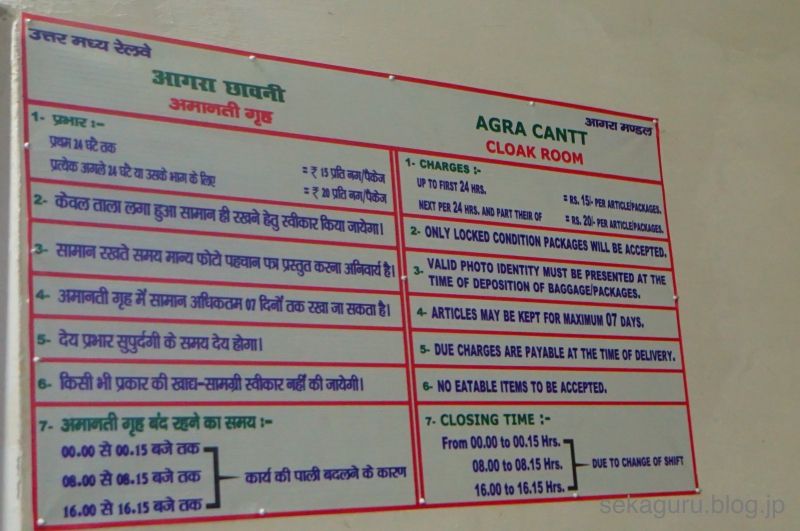 उत्तर मध्य रेलवे
आगरा छावनी
अमानती गृह
1- प्रभार :-
प्रथम 24 घंटे तक = ₹ 15 प्रति नग/पैकेज
प्रत्येक अगले 24 घंटे या उसके भाग के लिए = ₹ 20 प्रति नग/पैकेज
2- केवल ताला लगा हुआ सामान ही रखने हेतु स्वीकार किया जायेगा।
3- सामान रखते समय मान्य फोटो पहचान पत्र प्रस्तुत करना अनिवार्य है।
4- अमानती गृह में सामान अधिकतम 07 दिनों तक रखा जा सकता है।
5- देय प्रभार सुपुर्दगी के समय देय होगा।
6- किसी भी प्रकार की खाद्य-सामग्री स्वीकार नहीं की जायेगी।
7- अमानती गृह बंद रहने का समय :-
00.00 से 00.15 बजे तक
08.00 से 08.15 बजे तक
कार्य की पाली बदलने के कारण
16.00 से 16.15 बजे तक
आगरा मण्डल
AGRA CANTT
CLOAK ROOM
1- CHARGES :-
UP TO FIRST 24 HRS. = RS. 15/- PER ARTICLE/PACKAGES.
NEXT PER 24 HRS. AND PART THEIR OF = RS. 20/- PER ARTICLE/PACKAGES.
2- ONLY LOCKED CONDITION PACKAGES WILL BE ACCEPTED.
3- VALID PHOTO IDENTITY MUST BE PRESENTED AT THE
TIME OF DEPOSITION OF BAGGAGE/PACKAGES.
4- ARTICLES MAY BE KEPT FOR MAXIMUM 07 DAYS.
5- DUE CHARGES ARE PAYABLE AT THE TIME OF DELIVERY.
6- NO EATABLE ITEMS TO BE ACCEPTED.
7- CLOSING TIME :-
From 00.00 to 00.15 Hrs.
08.00 to 08.15 Hrs.
DUE TO CHANGE OF SHIFT
16.00 to 16.15 Hrs.
sekaguru.blog.jp